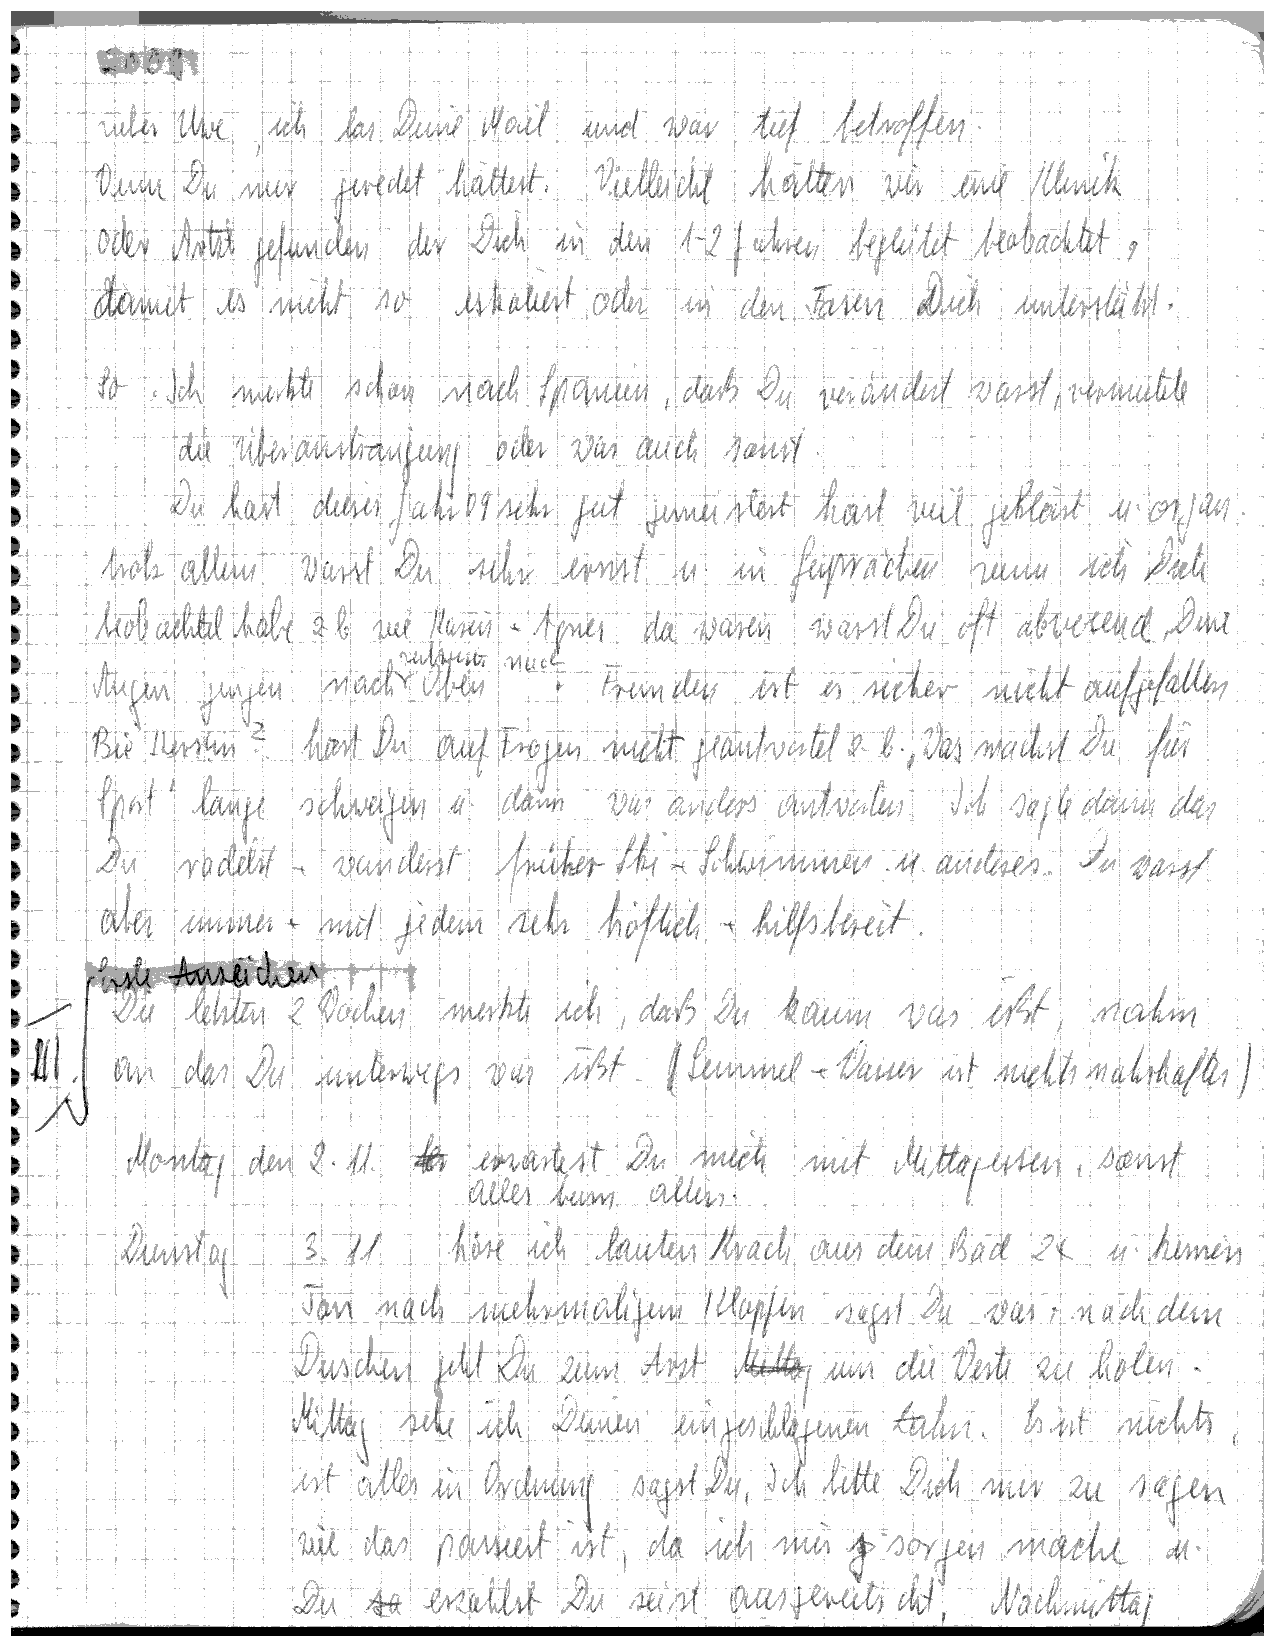 2009
lieber Uwe, ich las Deine Mail und war tief betroffen.
Wenn Du nur geredet hättest. Vielleicht hätten wir eine Klinik
oder Artzt gefunden der Dich in den 1-2 Jahren begleitet beobachtet,
damit es nicht so eskaliert oder in den Fasen Dich unterstützt.
So. Ich merkte schon nach Spanien, daß Du verändert warst, vermutete
die Überanstrangung oder was auch sonst.
Du hast dieses Jahr 09 sehr gut gemeistert hast viel geklärt u. organ.
trotz allem warst Du sehr ernst u. in Gesprächen wenn ich Dich
beobachtet habe z b wie Karin + Agnes da waren warst Du oft abwesend, Deine
Augen gingen nach oben. Fremden ist es sicher nicht aufgefallen
Bei Kerstin ? hast Du auf Fragen nicht geantwortet z. b. „Was machst Du für
Sport" lange schweigen u. dann was anders antworten. Ich sagte dann das
Du radelst + wanderst früher Ski + Schwimmen u. anderes. Du warst
aber immer + mit jedem sehr höflich + hilfsbereit.
Erste Anzeichen
Die letzten 2 Wochen merkte ich, daß Du kaum was ißt, nahm
an das Du unterwegs was ißt. (Semmel + Wasser ist nichts nahrhaftes)
Montag den 2. 11. erwartest Du mich mit Mittagessen, sonst
alles beim alten.
Dienstag 3. 11 höre ich lauten Krach aus dem Bad 2x u. keinen
Ton nach mehrmaligem Klopfen sagst Du was + nach dem
Duschen gehst Du zum Arzt um die Werte zu holen.
Mittag sehe ich Deinen eingeschlagenen Zahn. Es ist nichts,
ist alles in Ordnung sagst Du, Ich bitte Dich mir zu sagen
wie das passiert ist, da ich mir sorgen mache u.
Du erzählst Du seist ausgerutscht, Nachmittag